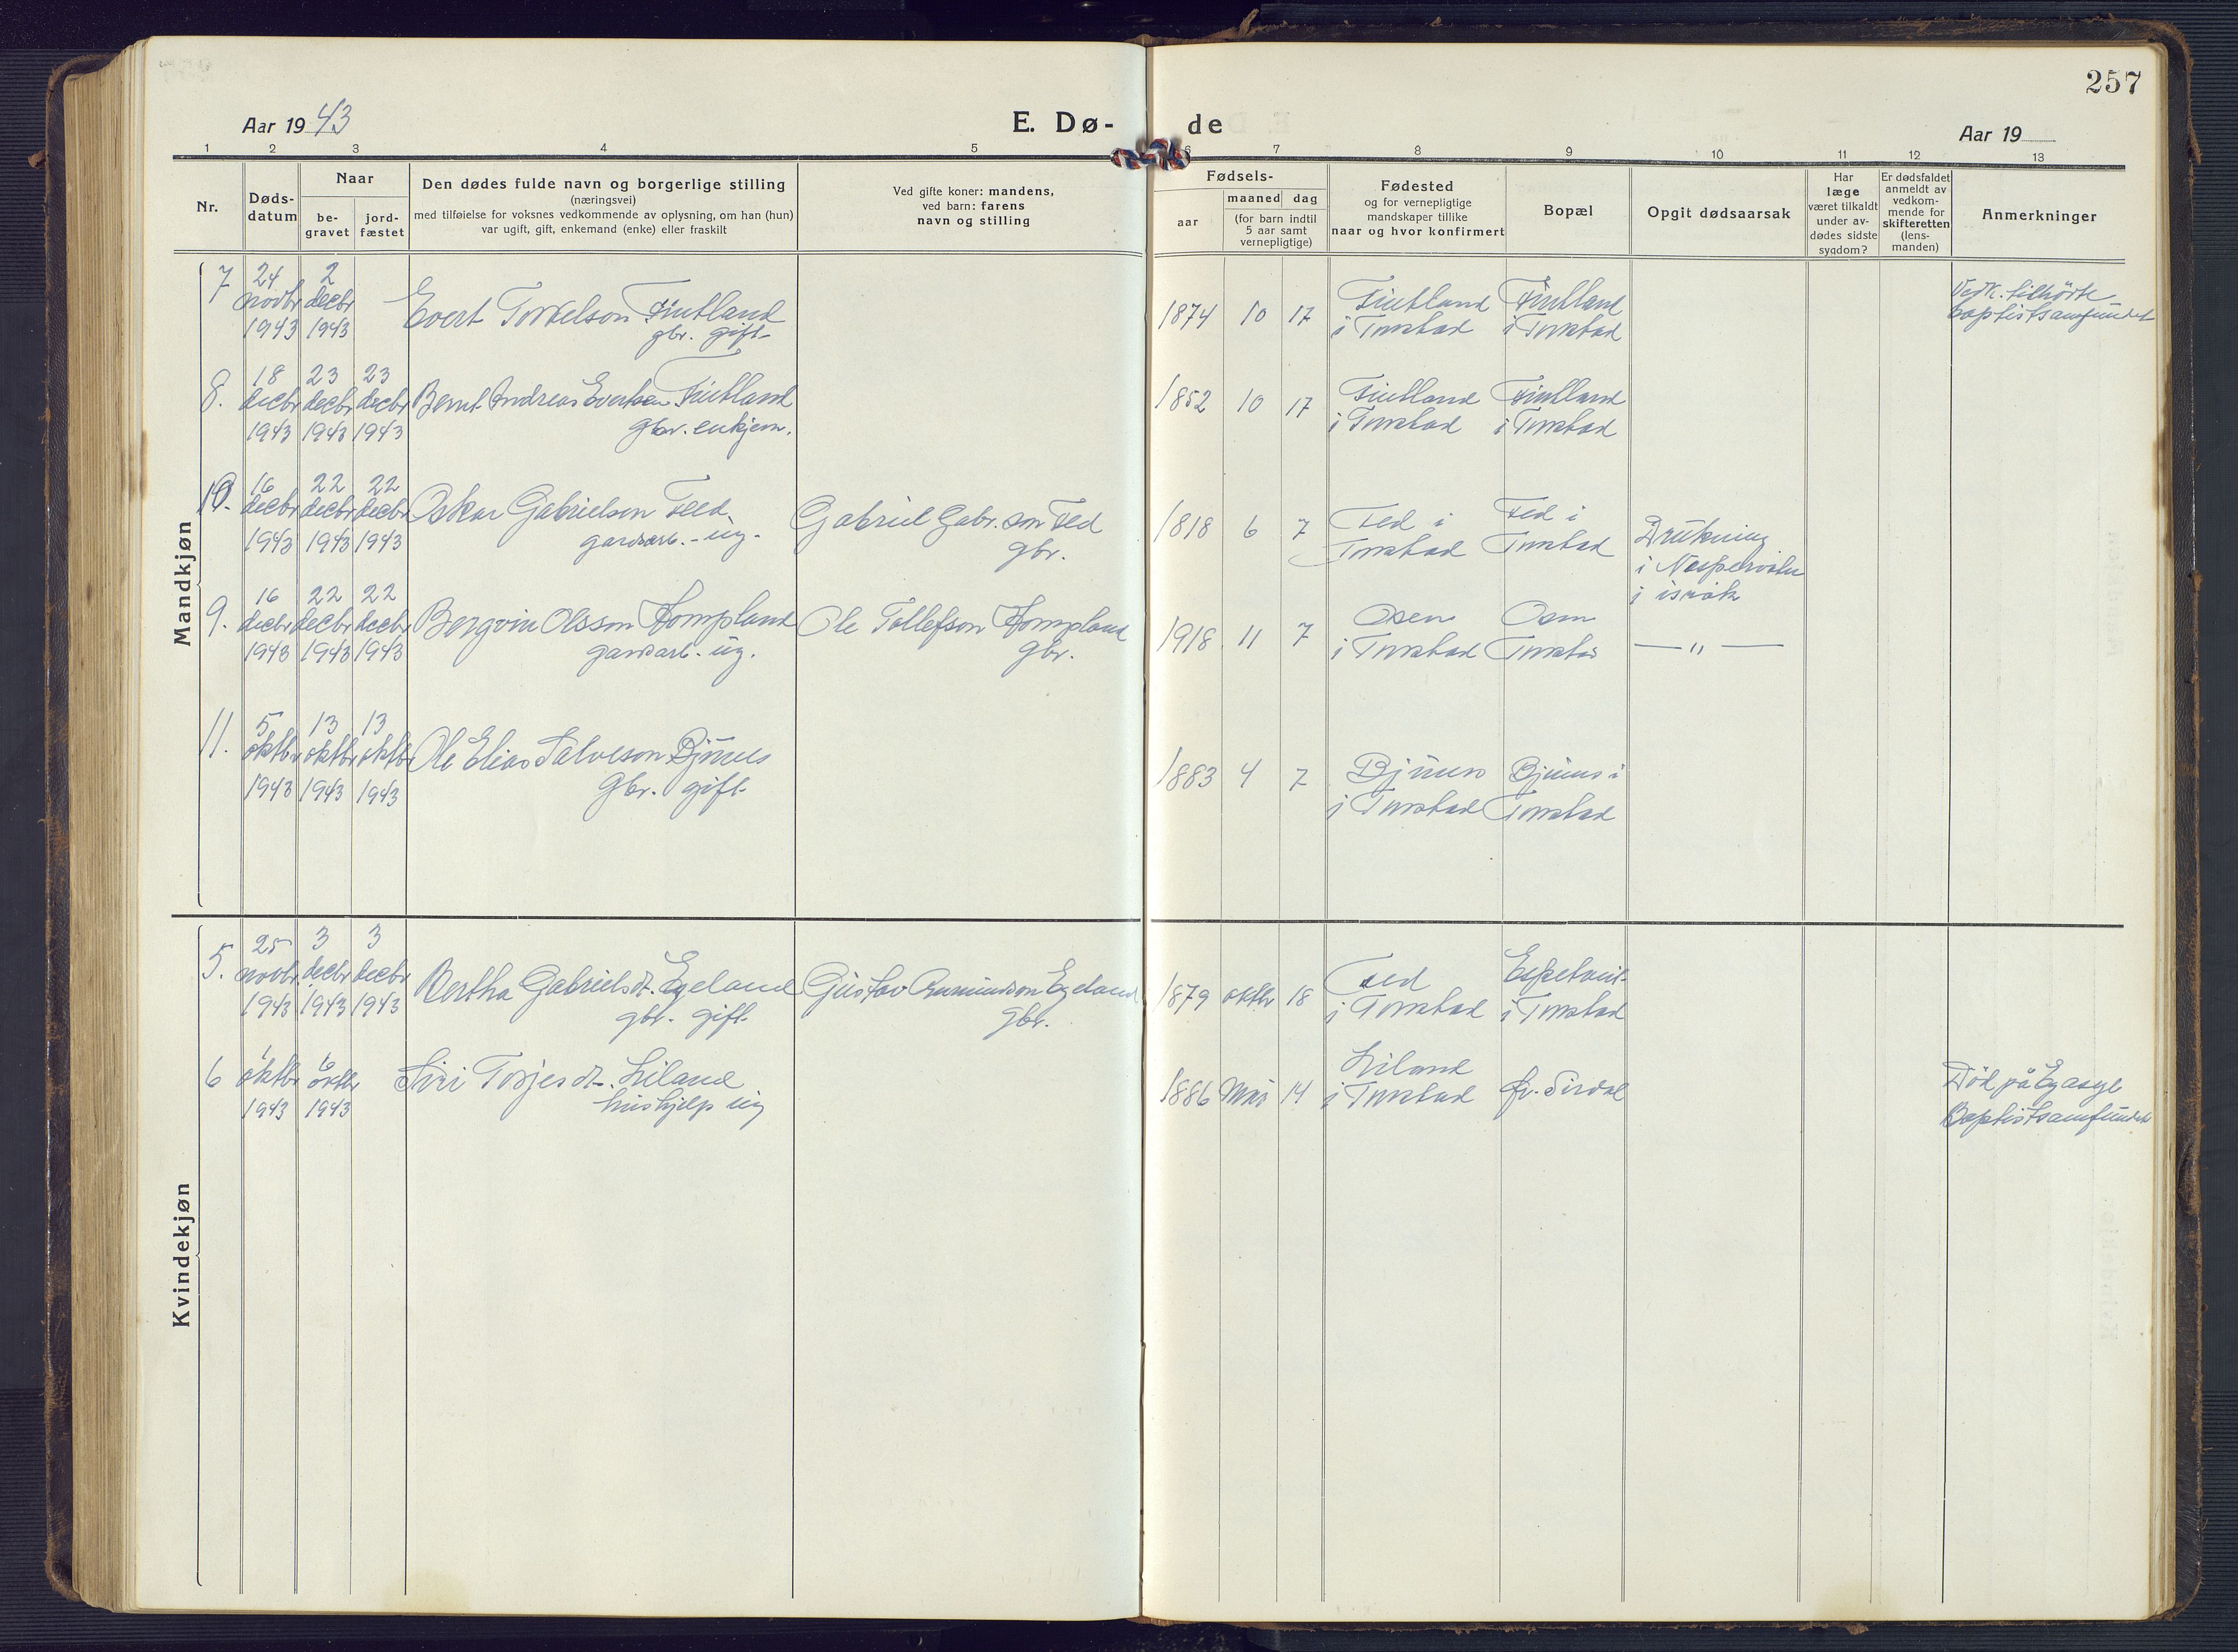 257
Aar 1943
E. Dø-de
Aar 19
1 2 3 4 5 6 7 8 9 10 11 12 13
Nr.
Døds-
datum
Naar
be-
gravet
jord-
fæstet
Den dødes fulde navn og borgerlige stilling
(næringsvei)
med tilføielse for voksnes vedkommende av oplysning, om han (hun)
var ugift, gift, enkemand (enke) eller fraskilt
Ved gifte koner: mandens,
ved barn: farens
navn og stilling
Fødsels-
aar
maaned dag
(for barn indtil
5 aar samt
vernepligtige)
Fødested
og for vernepligtige
mandskaper tillike
naar og hvor konfirmert
Bopæl
Opgit dødsaarsak
Har
læge
været tilkaldt
under av-
dødes sidste
sygdom?
Er dødsfaldet
anmeldt av
vedkom-
mende for
skifteretten
(lens-
manden)
Anmerkninger
Mandkjøn
7 24 2
novbr decbr
1943 1943
Evert Torkelson Fintland
gbr. gift
1874 10 17
Fintland Fintland
i Tonstad i Tonstad
Vedk. tilhörte
baptistsamfundet
8. 18 23 23
decbr decbr decbr
1943 1943 1943
Bernt Andreas Evertsen Fintland
gbr. enkjem.
1852 10 17
Fintland Fintland
i Tonstad i Tonstad
10. 16 22 22
decbr decbr decbr
1943 1943 1943
Oskar Gabrielson Fed
gardsarb. - ug.
Gabriel Gabr.son Fed
gbr.
1818 6 7
Fed i Fed i
Tonstad Tonstad
Drukning
i
i isråk
9. 16 22 22
decbr decbr decbr
1943 1943 1943
Bergvin Olsson Hompland
gardsarb. ug.
Ole Tollefson Hompland
gbr.
1918 11 7
Osen Osen
i Tonstad Tonstad
— " —
11. 5 13 13
oktbr oktbr oktbr
1943 1943 1943
Ole Elias Salveson Bjunes
Gbr. gift
1883 4 7
Bjunes Bjunes i
i Tonstad Tonstad
Kvindekjøn
5. 25 3 3
novbr decbr decbr
1943 1943 1943
Bertha Gabrielsdt. Egeland
gbr. gift.
Gustav Egeland
gbr.
1879 oktbr 18
Fed
i Tonstad i Tonstad
6 1 6
oktbr oktbr
1943 1943
Siri Torjesdt. Liland
hushjelp ug
1886 Mai 14
Liland
i Tonstad Øv. Sirdal
Död på
Baptistsamfundet